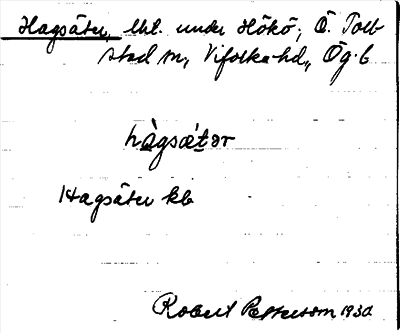 Hagsäter, lht. under Hökö, Ö. Tolb
stad sn, Vifolka hd, Ög.l.
hàgsæ̀tər
Hagsäter kb
Robert Pettersson 1930